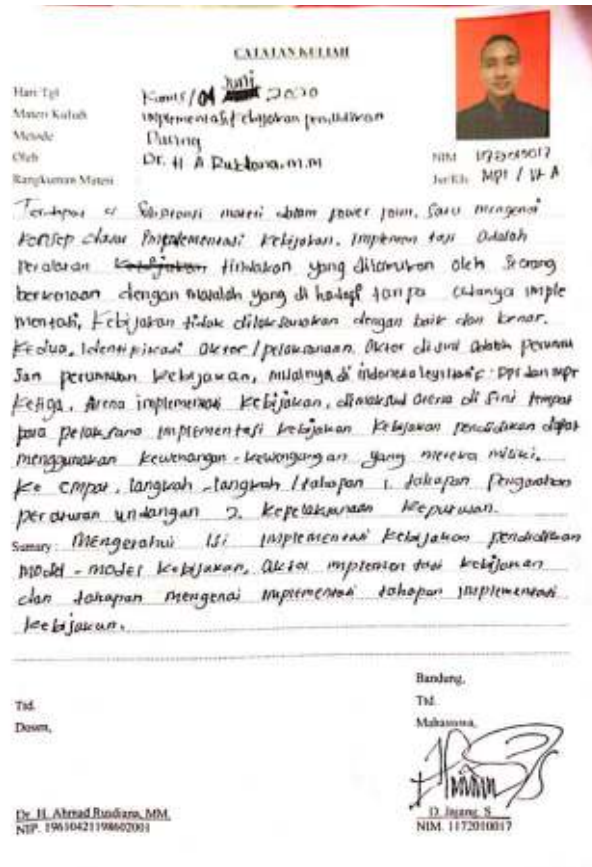 CATATAN KULIAH
Hari/Tgl Kamis/04 Juni 2020
Materi Kuliah implementasi kebijakan pendidikan
Metode Daring
Oleh Dr. H A Rusdiana, m.m
NIM 1172010017
Rangkuman Materi
Jur/Kls MPI / VI A
Terdapat 4 materi dalam power poin, Satu mengenai
Konsep dasar Implementasi Kebijakan. Implementasi Adalah
Peralatan tindakan yang dilakukan oleh Seorang
berkenaan dengan masalah yang di hadapi tanpa adanya imple
mentasi, Kebijakan tidak dilaksanakan dengan baik dan benar.
Kedua, Identipikasi Aktor / pelaksanaan. Aktor di sini adalah perumu
San perumusan kebijakan, misalnya di indonesia legislatif : DPR dan MPR
Ketiga, Arena implementasi Kebijakan, dimaksud arena di sini tempat
para pelaksana implementasi kebijakan Kebijakan pendidikan dapat
menggunakan kewenangan-kewengangan yang mereka miliki.
Ke empat, langkah-langkah / tahapan 1. tahapan Pengarahan
peraturan undangan 2. Kepelaksanaan keputusan.
Sumary: Mengetahui isi implementasi Kebijakan pendidikan
model-model kebijakan, aktor implementasi kebijakan
dan tahapan mengenai implementasi tahapan implementasi
kebijakan.
Bandung,
Ttd. Ttd.
Dosen, Mahasiswa,
Dr. H. Ahmad Rusdiana, MM. D. Jajang. S
NIP. 196104211986021001 NIM. 1172010017